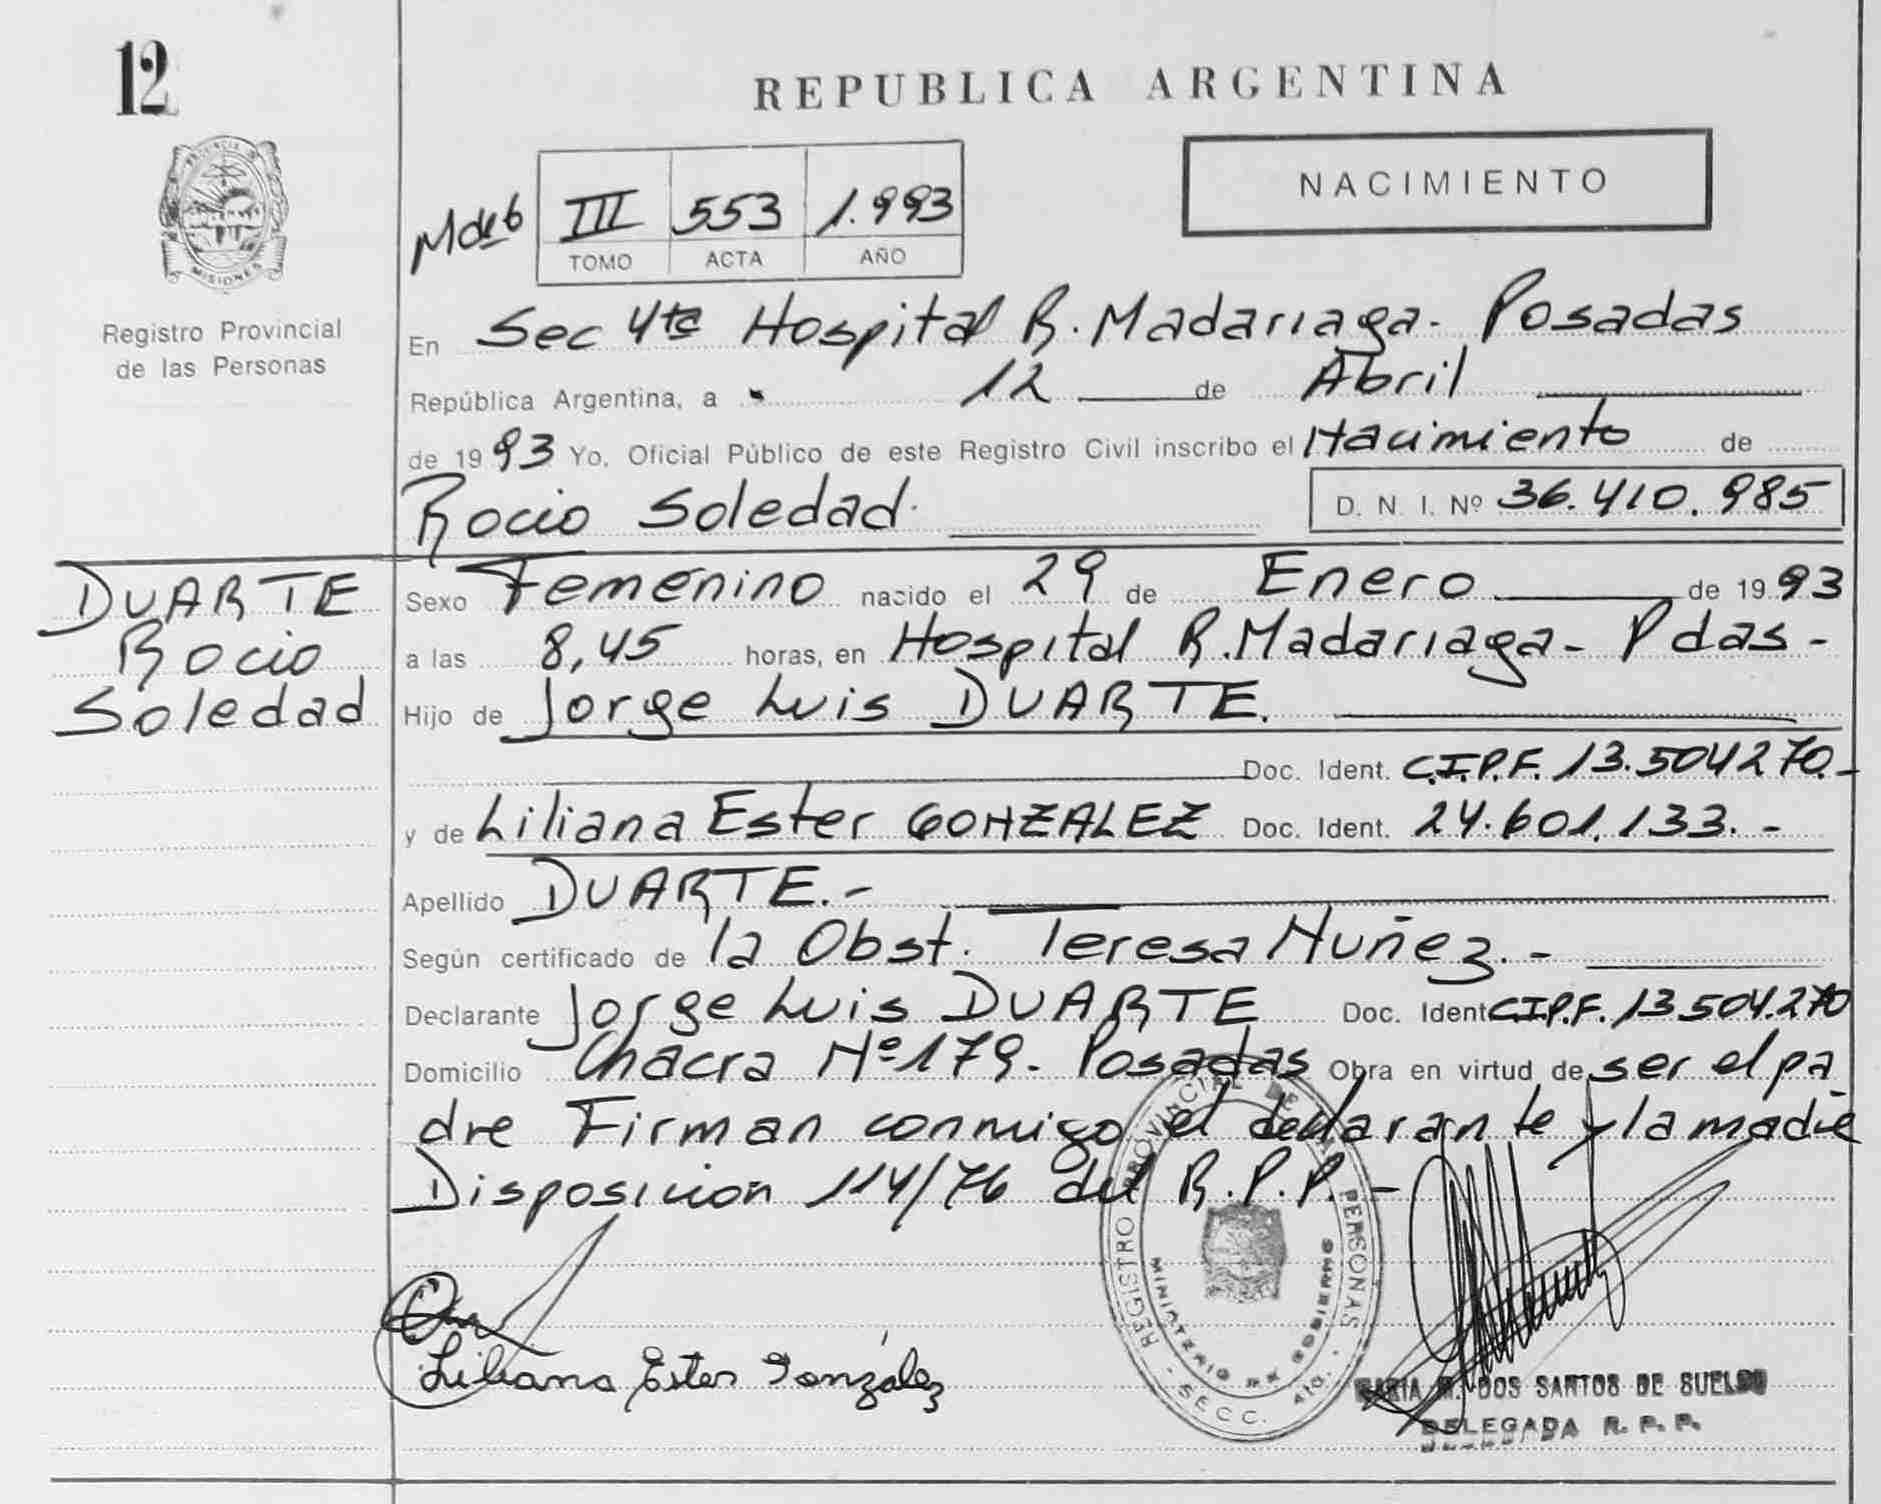 12
REPUBLICA ARGENTINA
PROVINCIA DE
MISIONES
Registro Provincial
de las Personas
III 553 1.993
TOMO ACTA AÑO
NACIMIENTO
En Sec 4ta Hospital R. Madariaga - Posadas
República Argentina, a 12 de Abril
de 1993 Yo, Oficial Público de este Registro Civil inscribo el Nacimiento de
Rocio Soledad. D. N. I. Nº 36.410.985
DUARTE
Rocio
Soledad
Sexo Femenino nacido el 29 de Enero de 1993
a las 8,45 horas, en Hospital R. Madariaga - Pdas -
Hijo de Jorge Luis DUARTE.
Doc. Ident. C.I.P.F. 13.504270.-
y de Liliana Ester GONZALEZ Doc. Ident. 24.601.133. -
Apellido DUARTE. -
Según certificado de la Obst. Teresa Nuñez. -
Declarante Jorge Luis DUARTE Doc. Ident C.I.P.F. 13.504.270
Domicilio Chacra Nº 179 - Posadas Obra en virtud de ser el pa
dre Firman conmigo el declarante y la madre
Disposicion 114/76 del R.P.P. -
REGISTRO PROVINCIAL DE LAS PERSONAS
MINISTERIO DE GOBIERNO
- SECC. 4ta. -
Liliana Ester González
MARIA M. DOS SANTOS DE SUELDO
DELEGADA R. P. P.